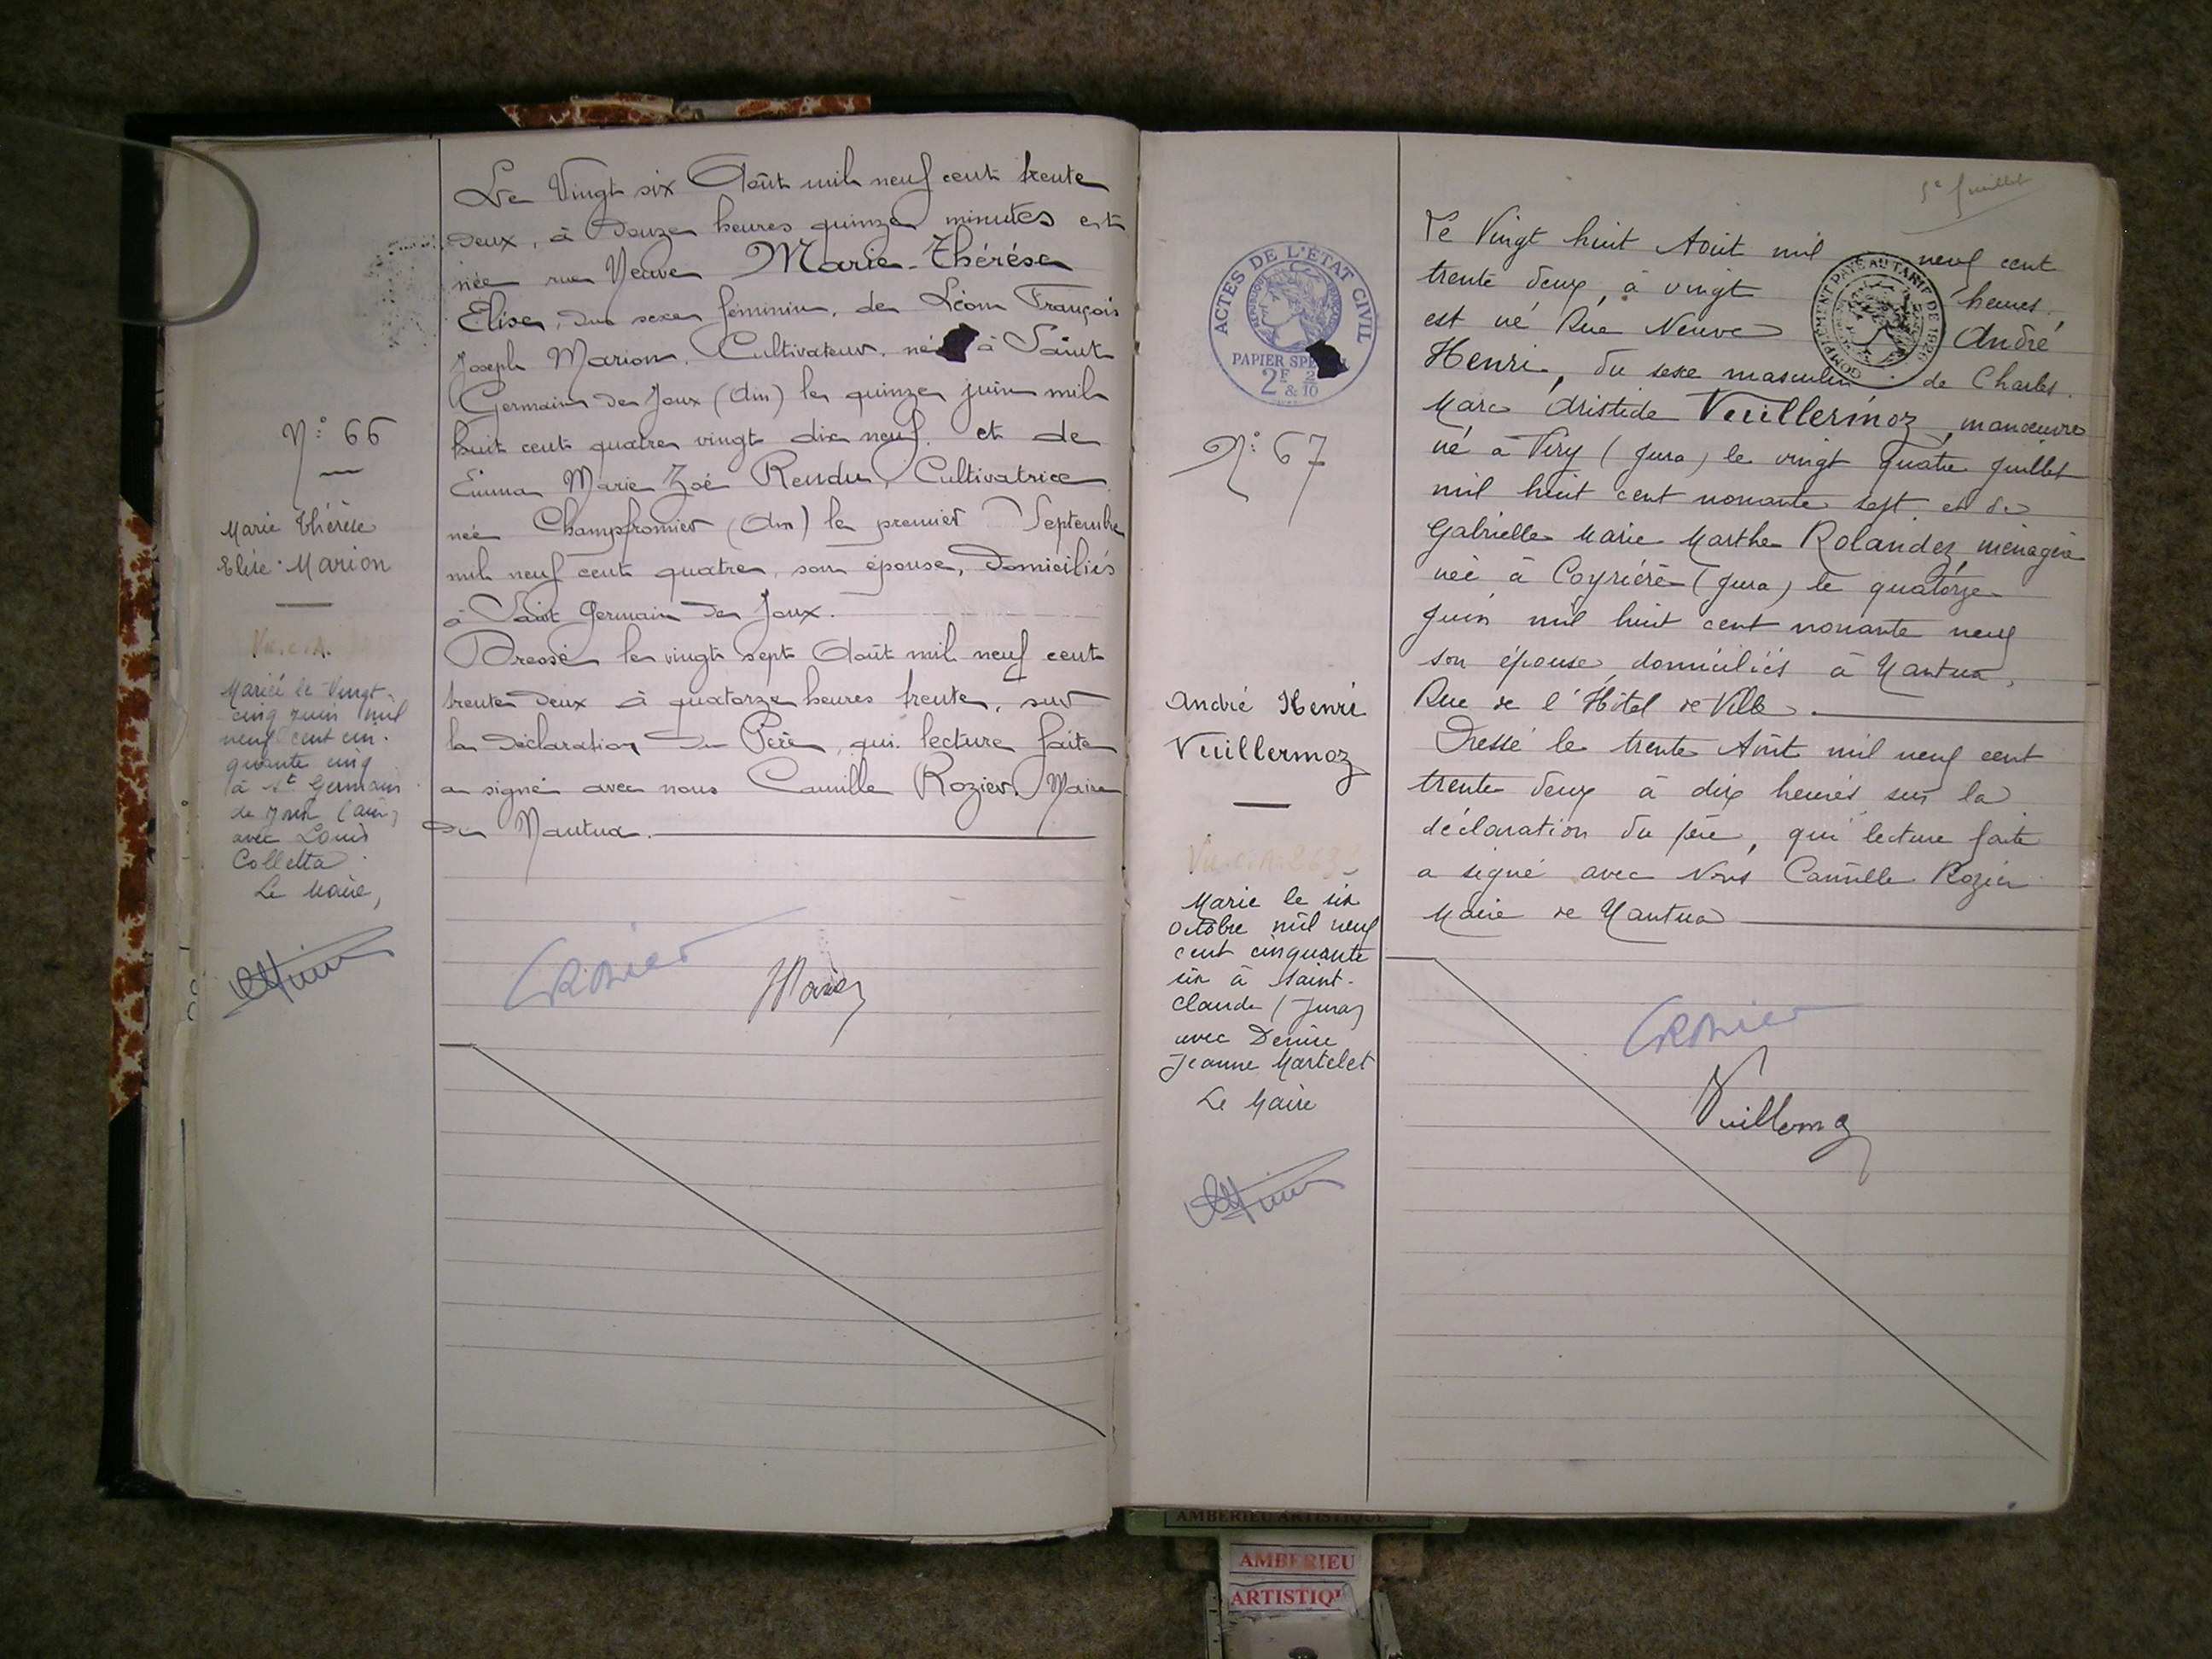 Le Vingt six Août mil neuf cent trente
deux, à Douze heures quinze minutes est
née rue Neuve Marie-Thérèse
Elise, du sexe féminin, de Léon François
Joseph Marion, Cultivateur, né à Saint
Germain de Joux (Ain) le quinze juin mil
huit cent quatre vingt dix neuf. et de
Emma Marie Zoé Rendu, Cultivatrice
née Champfromier (Ain) le premier Septembre
mil neuf cent quatre, son épouse, Domiciliés
à Saint Germain de Joux.
Dressé le vingt sept Août mil neuf cent
trente deux à quatorze heures trente, sur
la déclaration du Père, qui lecture faite
a signé avec nous Camille Rozier, Maire
de Nantua.
N° 66
Marie Thérèse
Elise Marion
Mariée le Vingt-
cinq juin mil
neuf cent cin-
quante cinq
à St Germain
de Joux (Ain)
avec Louis
Colletta.
Le Maire,
CRozier
5e feuillet
ACTES DE L'ÉTAT CIVIL
PAPIER SPÉCIAL
2F & 2/10
N° 67
André Henri
Vuillermoz
Marié le six
octobre mil neuf
cent cinquante
six à Saint-
Claude (Jura)
avec Denise
Jeanne Martelet
Le Maire
Le Vingt huit Août mil neuf cent
trente deux, à vingt heures.
est né Rue Neuve André
Henri, du sexe masculin de Charles
Marc Aristide Vuillermoz, manœuvre
né à Viry (Jura) le vingt quatre juillet
mil huit cent nonante sept et de
Gabrielle Marie Marthe Rolandez, ménagère
née à Coyrière (Jura) le quatorze
Juin mil huit cent nonante neuf
son épouse, domiciliés à Nantua,
Rue de l'Hôtel de Ville.
Dressé le trente Août mil neuf cent
trente deux à dix heures sur la
déclaration du père, qui lecture faite
a signé avec Nous Camille Rozier
Maire de Nantua
COMPLÉMENT PAYÉ AU TARIF DE 1926
CRozier
Vuillermoz
AMBERIEU ARTISTIQUE
AMBERIEU
ARTISTIQU